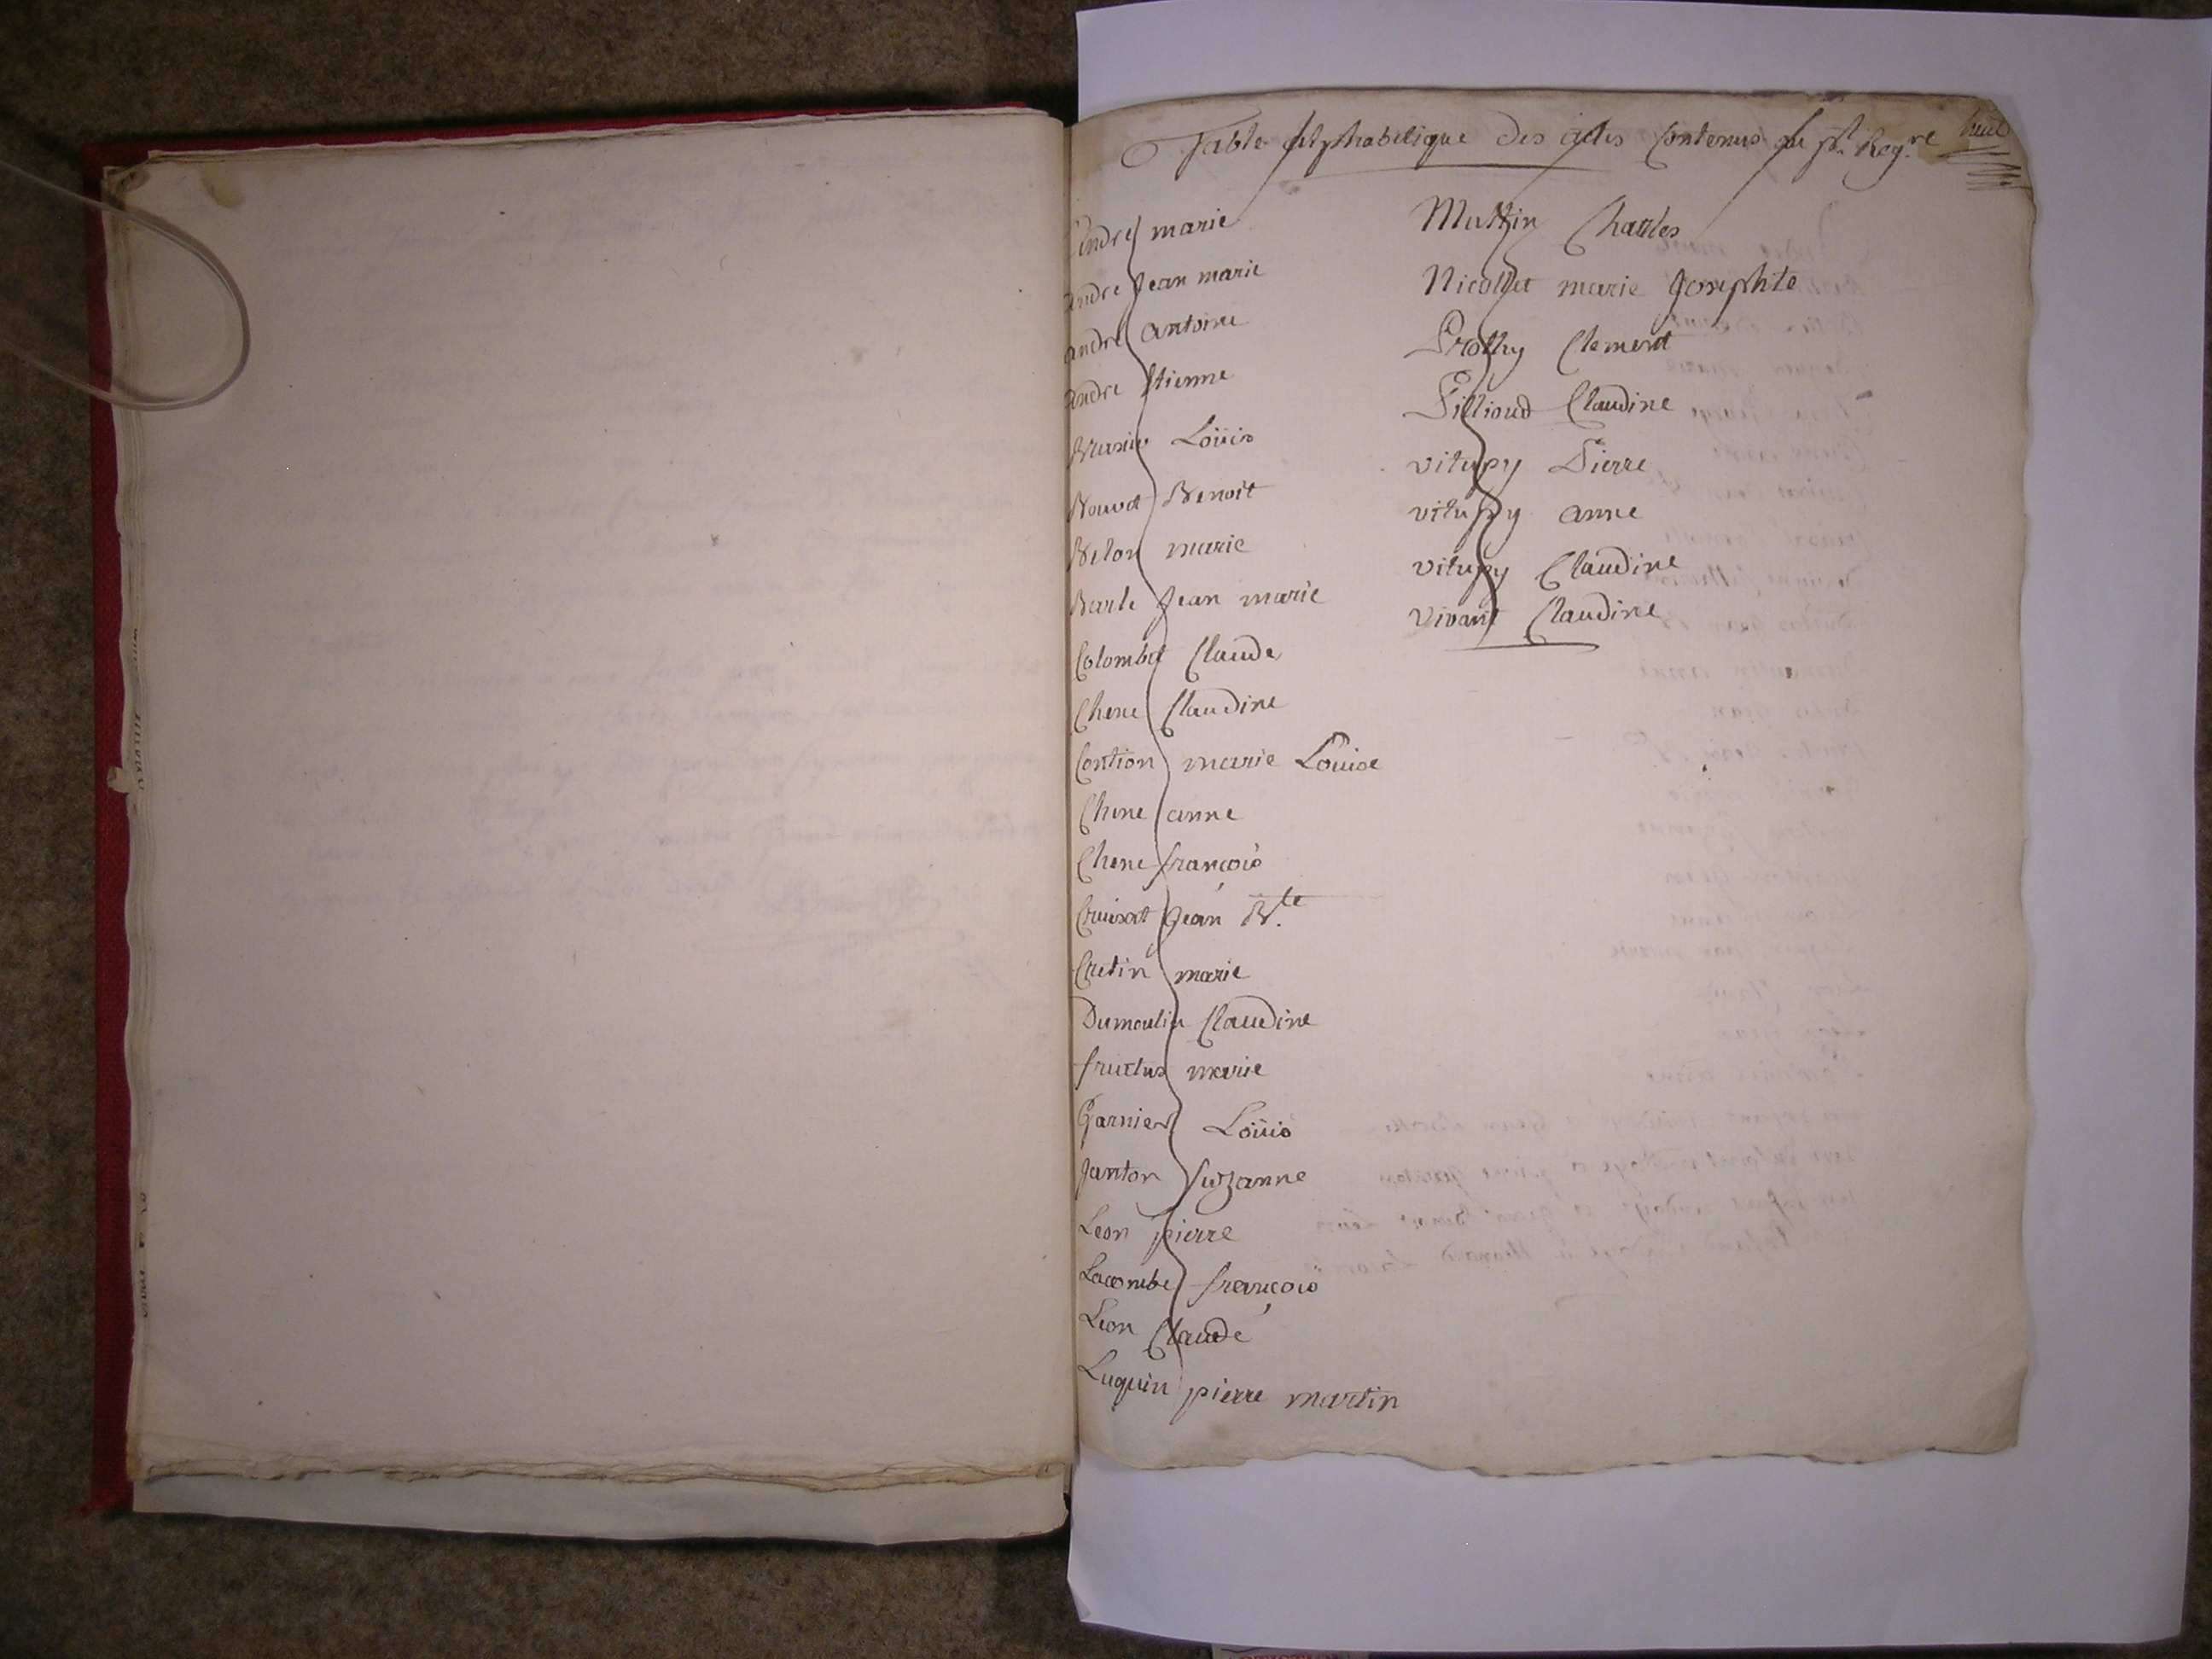 Table alphabetique Des actes Contenus au pt. Reg.re
huit
andre marie
andre Jean marie
andre antoine
andre Etienne
Louis
Bouvet Benoit
Belon marie
Barle Jean marie
Colombet Claude
Chene Claudine
Contion marie Louise
Chene anne
Chene françois
Jean B.te
Cretin marie
Dumoulin Claudine
fructus marie
Garnier Louis
Janton Suzanne
Leon pierre
Lacombe françois
Leon Claude
Luquin pierre martin
Muttin Charles
Nicollet marie Josephte
Prothy Clement
Pillioud Claudine
vitupy Pierre
vitupy anne
vitupy Claudine
vivant Claudine